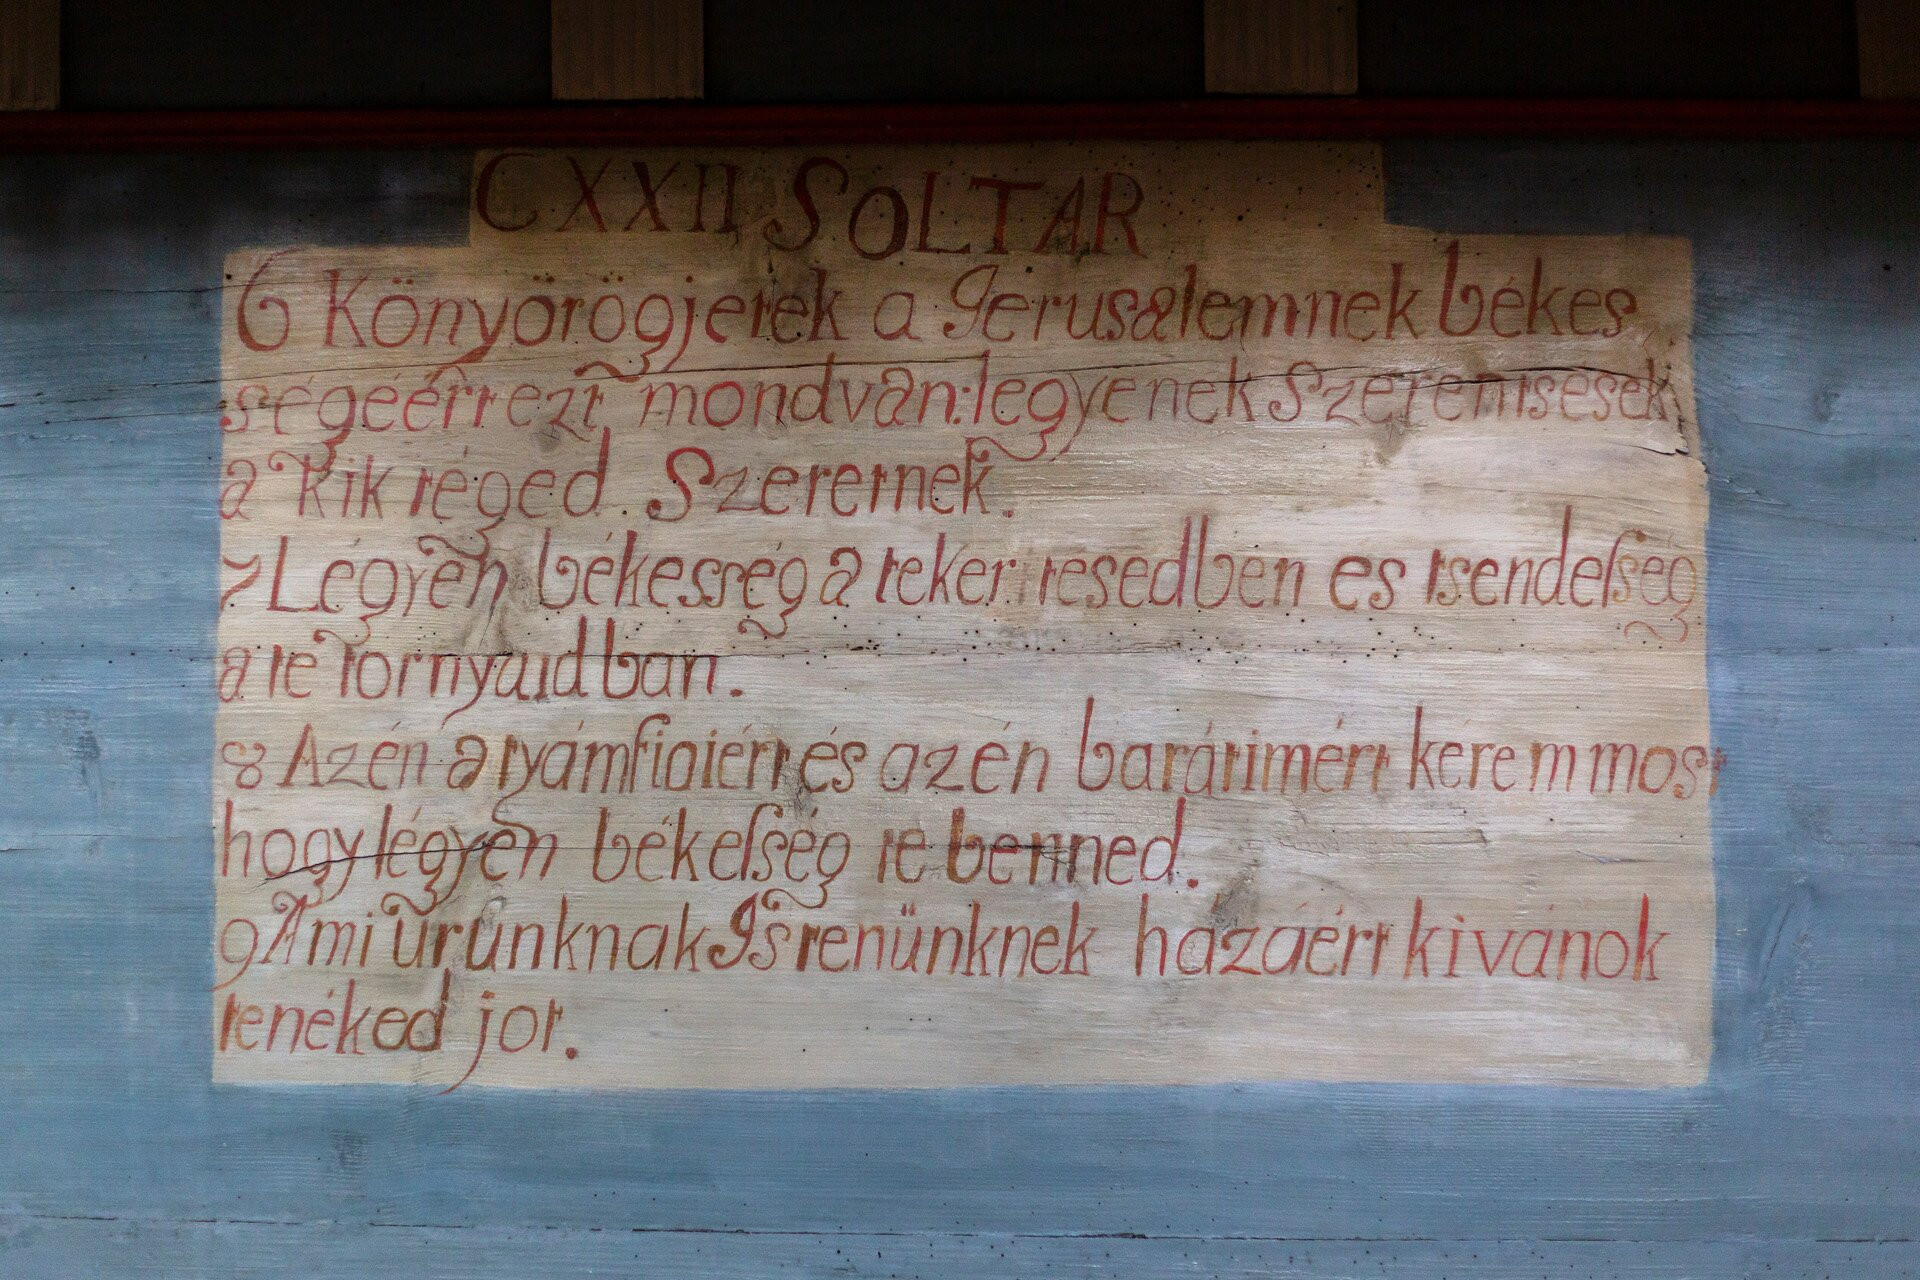 CXXII SOLTAR
6 Könyörögjetek a Jerusalemnek békes
ségéért ezt mondván: legyenek Szerentsések
a kik téged. Szeretnek.
7 Légyen békesség a te kerittésedben es tsendesség
a te tornyaidban.
8 Az én atyámfiaiért és az én barátimért kerem most
hogy légyen békesség te benned.
9 A mi Urunknak Istenünknek házáért kivánok
tenéked jot.